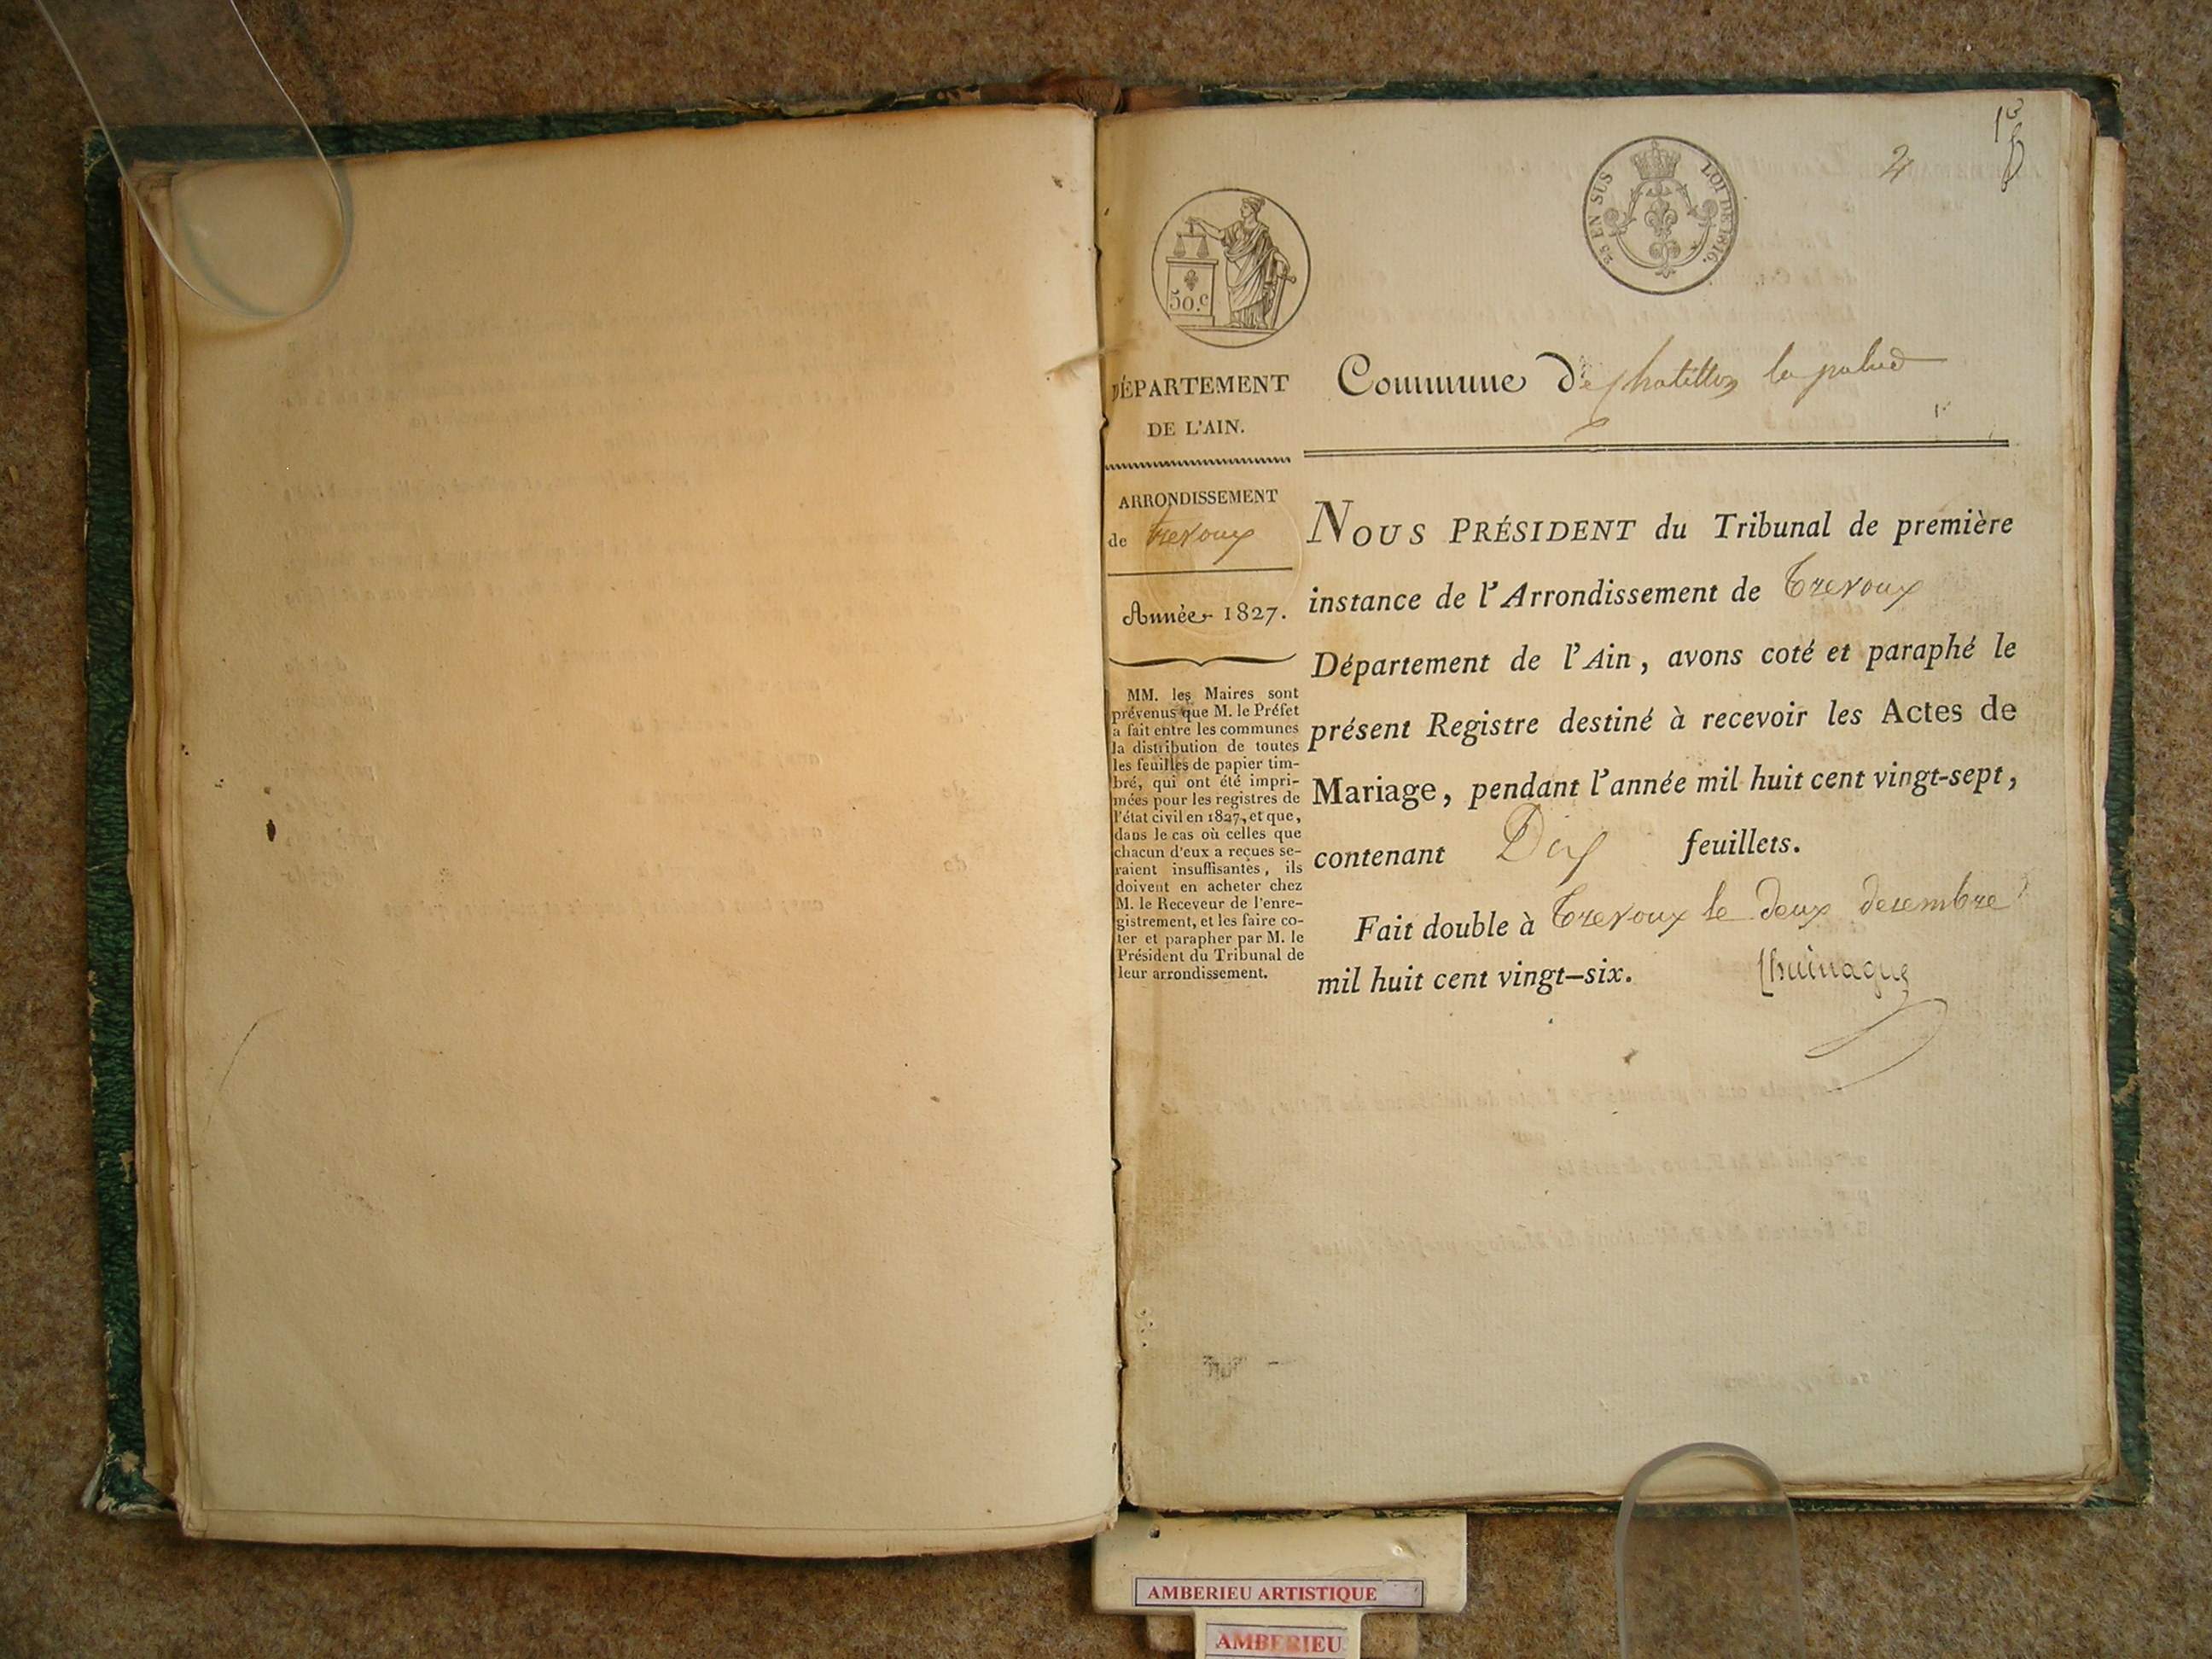 2
25 EN SUS
LOI DE 1816.
50.c
DÉPARTEMENT
DE L'AIN.
ARRONDISSEMENT
de trevoux
Année 1827.
MM. les Maires sont
prévenus que M. le Préfet
a fait entre les communes
la distribution de toutes
les feuilles de papier tim-
bré, qui ont été impri-
mées pour les registres de
l'état civil en 1827, et que,
dans le cas où celles que
chacun d'eux a reçues se-
raient insuffisantes, ils
doivent en acheter chez
M. le Receveur de l'enre-
gistrement, et les faire co-
ter et parapher par M. le
Président du Tribunal de
leur arrondissement.
Commune de chatillon la palud
NOUS PRÉSIDENT du Tribunal de première
instance de l'Arrondissement de Trevoux
Département de l'Ain, avons coté et paraphé le
présent Registre destiné à recevoir les Actes de
Mariage, pendant l'année mil huit cent vingt-sept,
contenant Dix feuillets.
Fait double à Trevoux le deux decembre
mil huit cent vingt-six.
AMBERIEU ARTISTIQUE
AMBERIEU